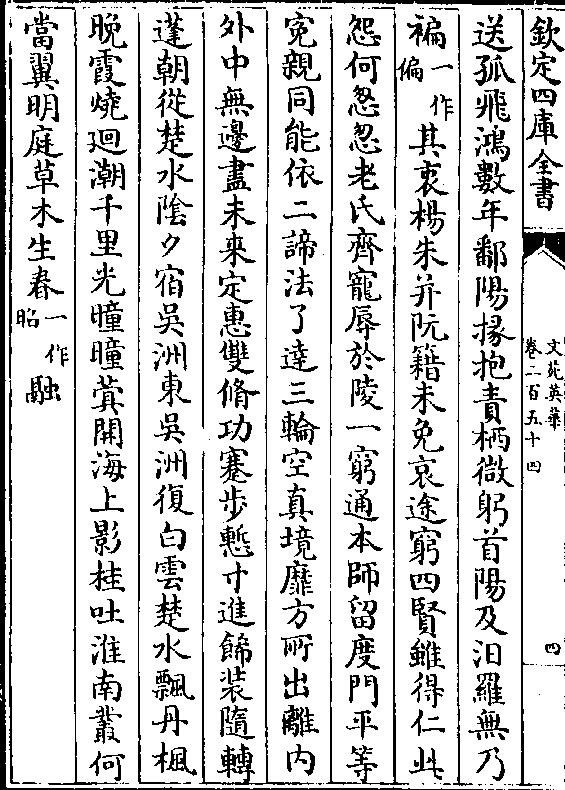 欽定四庫全書
文苑英華
卷二百五十四
四
送孤飛鴻數年鄱陽掾抱責栖微躬首陽及汨羅無乃
褊一作偏其衷楊朱并阮籍未免哀途窮四賢雖得仁此
怨何怱怱老氏齊寵辱於陵一窮通本師留度門平等
寃親同能依二諦法了達三輪空真境靡方所出離内
外中無邊盡未來定惠雙脩功蹇步慙寸進餙装隨轉
蓬朝從楚水陰夕宿吳洲東吳洲復白雲楚水飄丹楓
晩霞燒廻潮千里光曈曈蓂開海上影桂吐淮南叢何
當翼明庭草木生春昭一作融